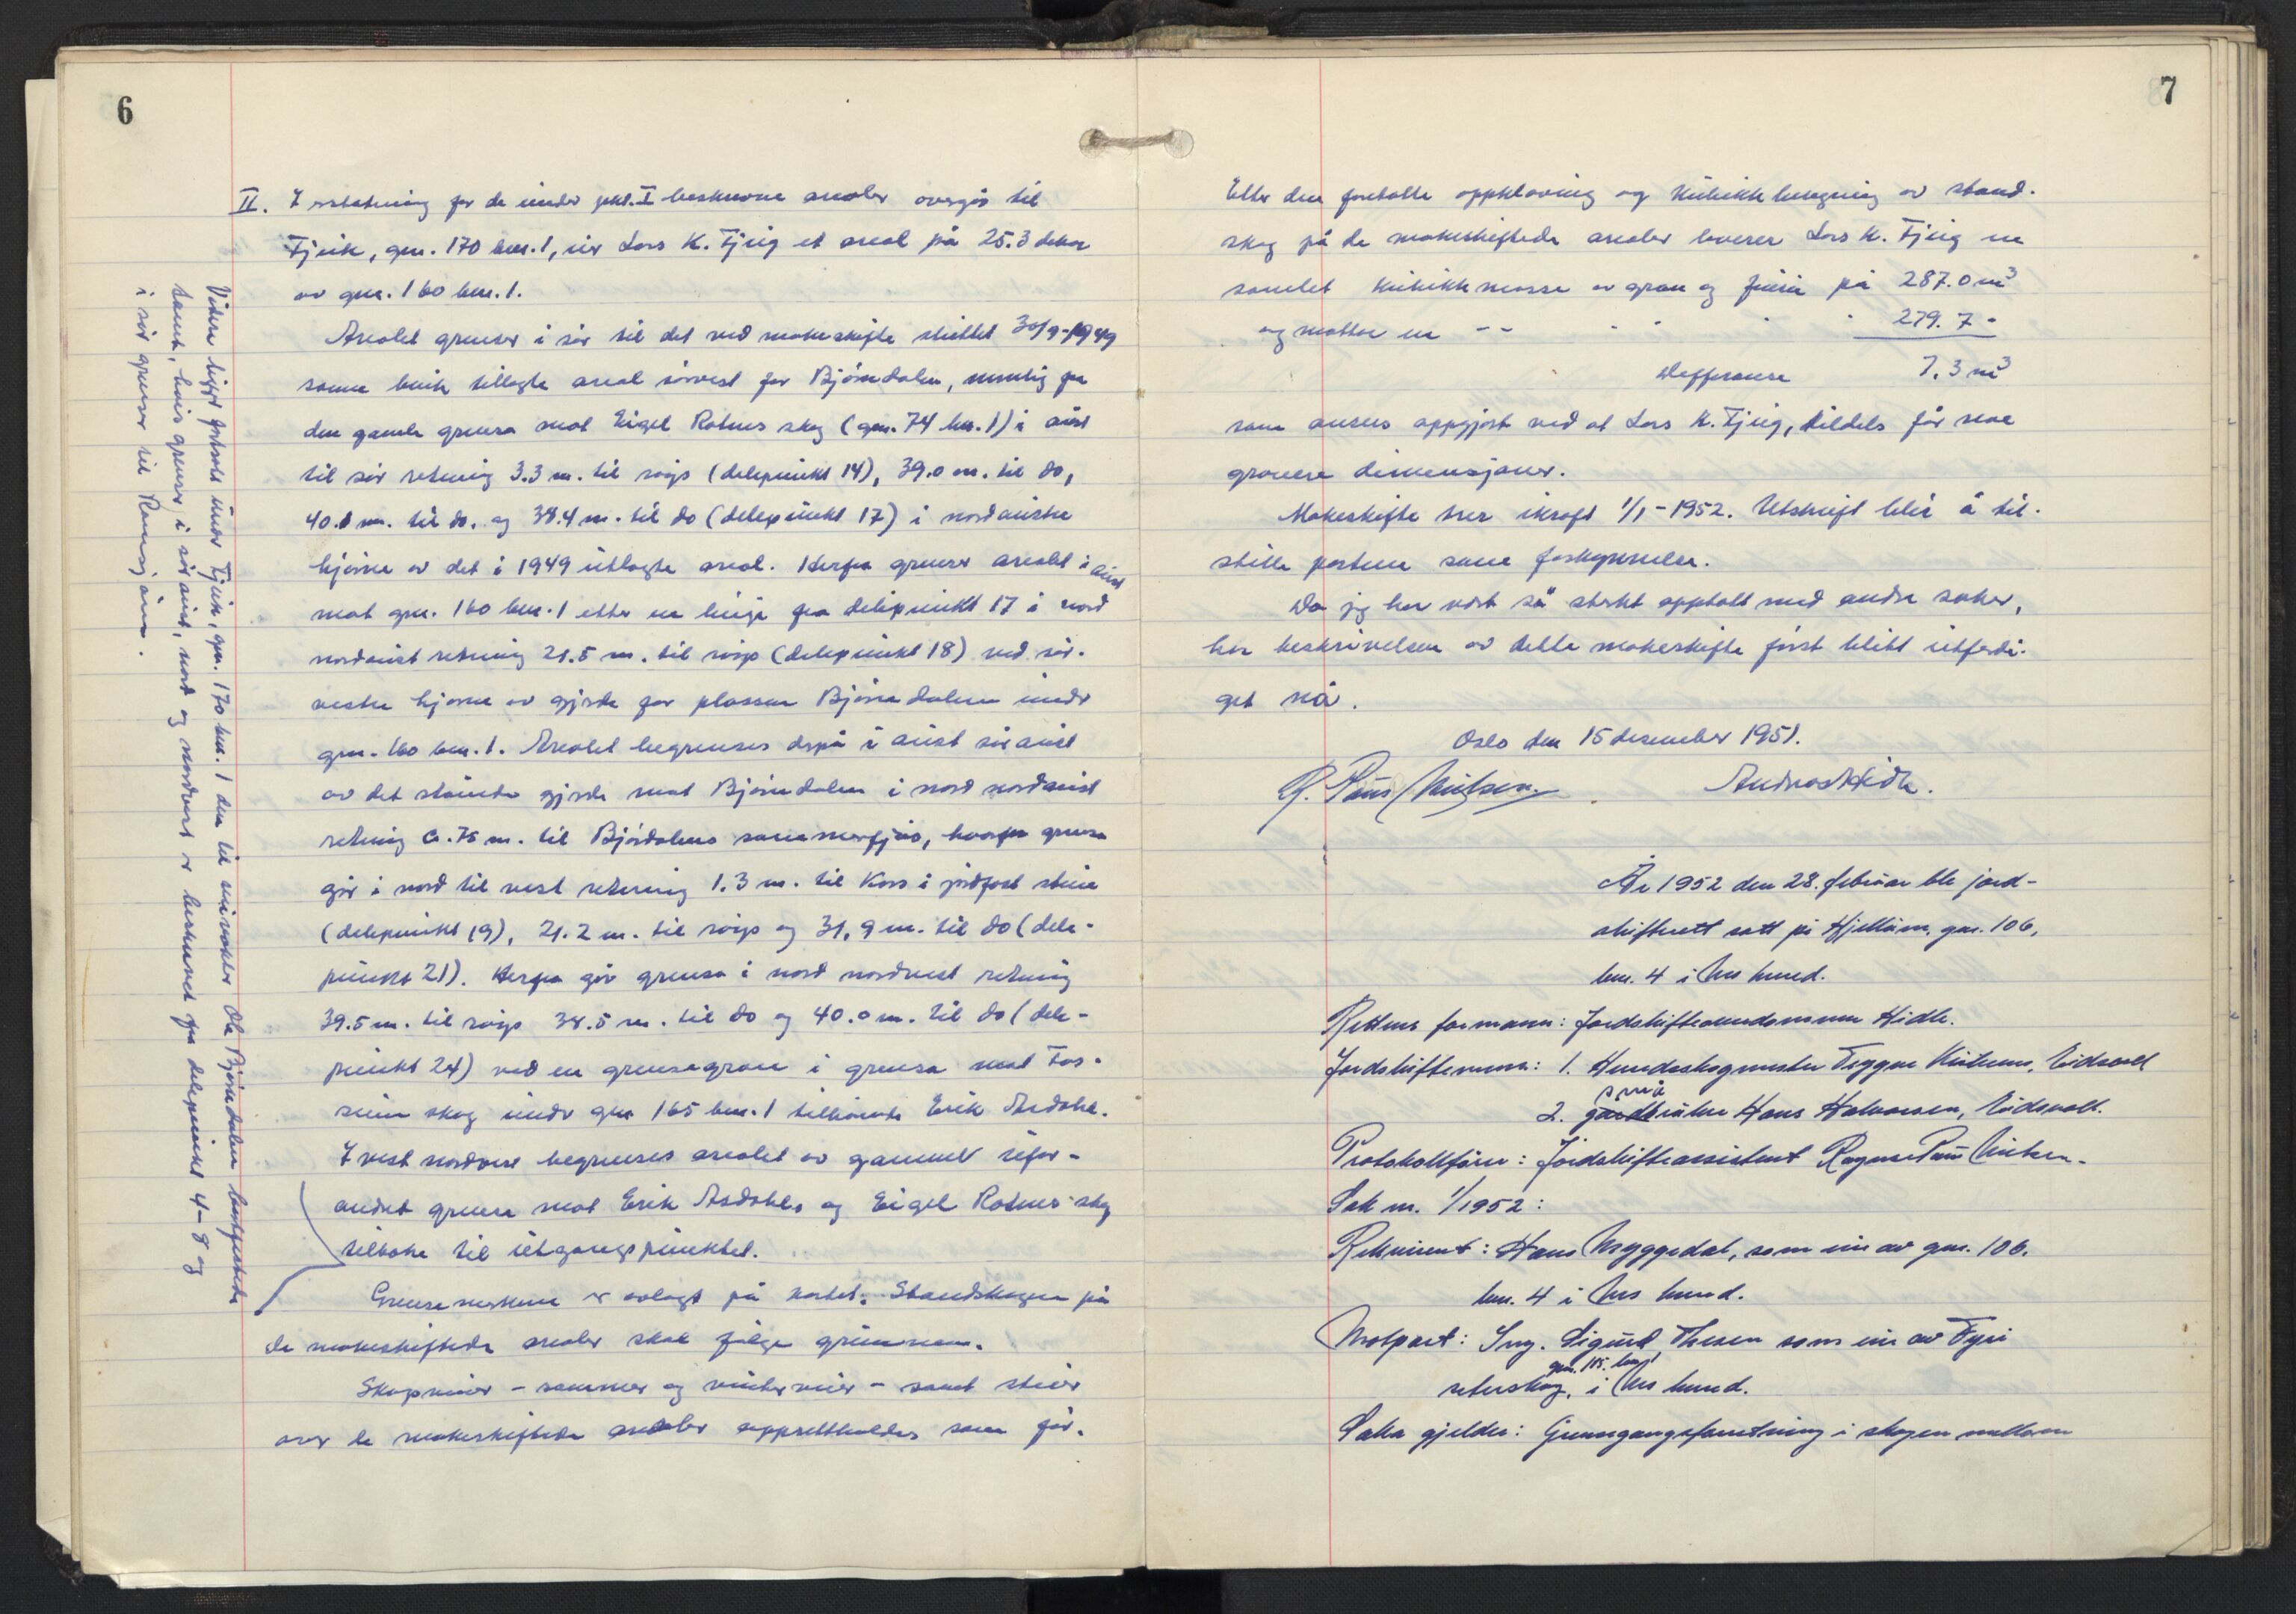 6
II. I erstatning for de under pkt. I beskrevne arealer overgår til
Fjeik, gnr. 170 bnr. 1, eier Lars K. Fjeig et areal på 25.3 dekar
av gnr. 160 bnr. 1.
Arealet grenser i sør til det ved makeskifte sluttet 30/9-1949
samme bruk tillagte areal sørvest for Bjørndalen, nemlig fra
den gamle grensa mot Eigel Rotnes skog (gnr. 74 bnr. 1) i aust
til sør retning 3.3 m. til røys (delepunkt 14), 39.0 m. til do,
40.0 m. til do. og 38.4 m. til do (delepunkt 17) i nordaustre
hjørne av det i 1949 utlagte areal. Herfra grenser arealet i aust
mot gnr. 160 bnr. 1 etter en linje fra delepunkt 17 i nord
nordaust retning 21.5 m. til røys (delepunkt 18) ved sør-
vestre hjørne av gjerde for plassen Bjørndalen under
gnr. 160 bnr. 1. Arealet begrenses derpå i aust søraust
av det stående gjerde mot Bjørndalen i nord nordaust
retning c. 75 m. til Bjørdalens sommerfjøs, hvorfra grensa
går i nord til vest retning 1.3 m. til kors i jordfast stein
(delepunkt 19), 21.2 m. til røys og 31.9 m. til do (dele-
punkt 21). Herfra går grensa i nord nordvest retning
39.5 m. til røys 38.5 m. til do og 40.0 m. til do (dele-
punkt 24) ved en grensegran i grensa mot
skog under gnr 165 bnr. 1 tilhørende Erik Asdahl.
I vest nordvest begrenses arealet av gammel ufor-
andret grense mot Erik Asdahls og Eigel Rotnes skog
tilbake til utgangspunktet.
Grensemerkene er avlagt på kartet. Standskogen på
de makeskiftede arealer skal følge grunnen.
Skogsveier - sommer og vinterveier - samt stier
over de makeskiftede arealer opprettholdes som før.
Videre ligger fortsatt under Fjeik, gnr. 170 bnr. 1 den til Ola Bjørndalen bortfestede
tomt, hvis grenser i søraust, nord og nordvest er beskrevet fra delepunkt 4-8 og
i sør grenser til
7
Etter den foretatte oppklaving og kubikkberegning av stand-
skog på de makeskiftede arealer leverer Lars K. Fjeig en
samlet kubikkmasse av gran og furu på 287.0 m³
og mottar en -- - - - 279.7 -
Defferanse 7.3 m³
som anses oppgjort ved at Lars K. Fjeig, tildels får noe
grovere dimensjoner.
Makeskifte trer ikraft 1/1-1952. Utskrift blir å til-
stille partene samt
Da jeg har vært så sterkt opptatt med andre saker,
har beskrivelsen av dette makeskifte først blitt utferdi-
get nå.
Oslo den 15 desember 1951.
R. Paus Nielsen. Andreas Hidle.
År 1952 den 28. februar ble jord-
skifterett satt på gnr. 106,
bnr. 4 i Nes herred.
Rettens formann: Jordskifte Hidle.
Jordskiftemenn: 1. Herredsskogmester Trygve Eidsvoll
2. småbruker Hans Halvorsen, Eidsvoll.
Protokollfører: Jordskifteassistent Ragnar Paus Nielsen.
Sak nr. 1/1952:
Rekvirent: Hans Myggedal, som eier av gnr. 106.
bnr. 4 i Nes herred.
Motpart: Ing. Sigurd Thesen som eier av Fyri
seterskog, gnr. 115. bnr. 1 i Nes herred.
Saka gjelder: Grensegangsforretning i skogen mellom